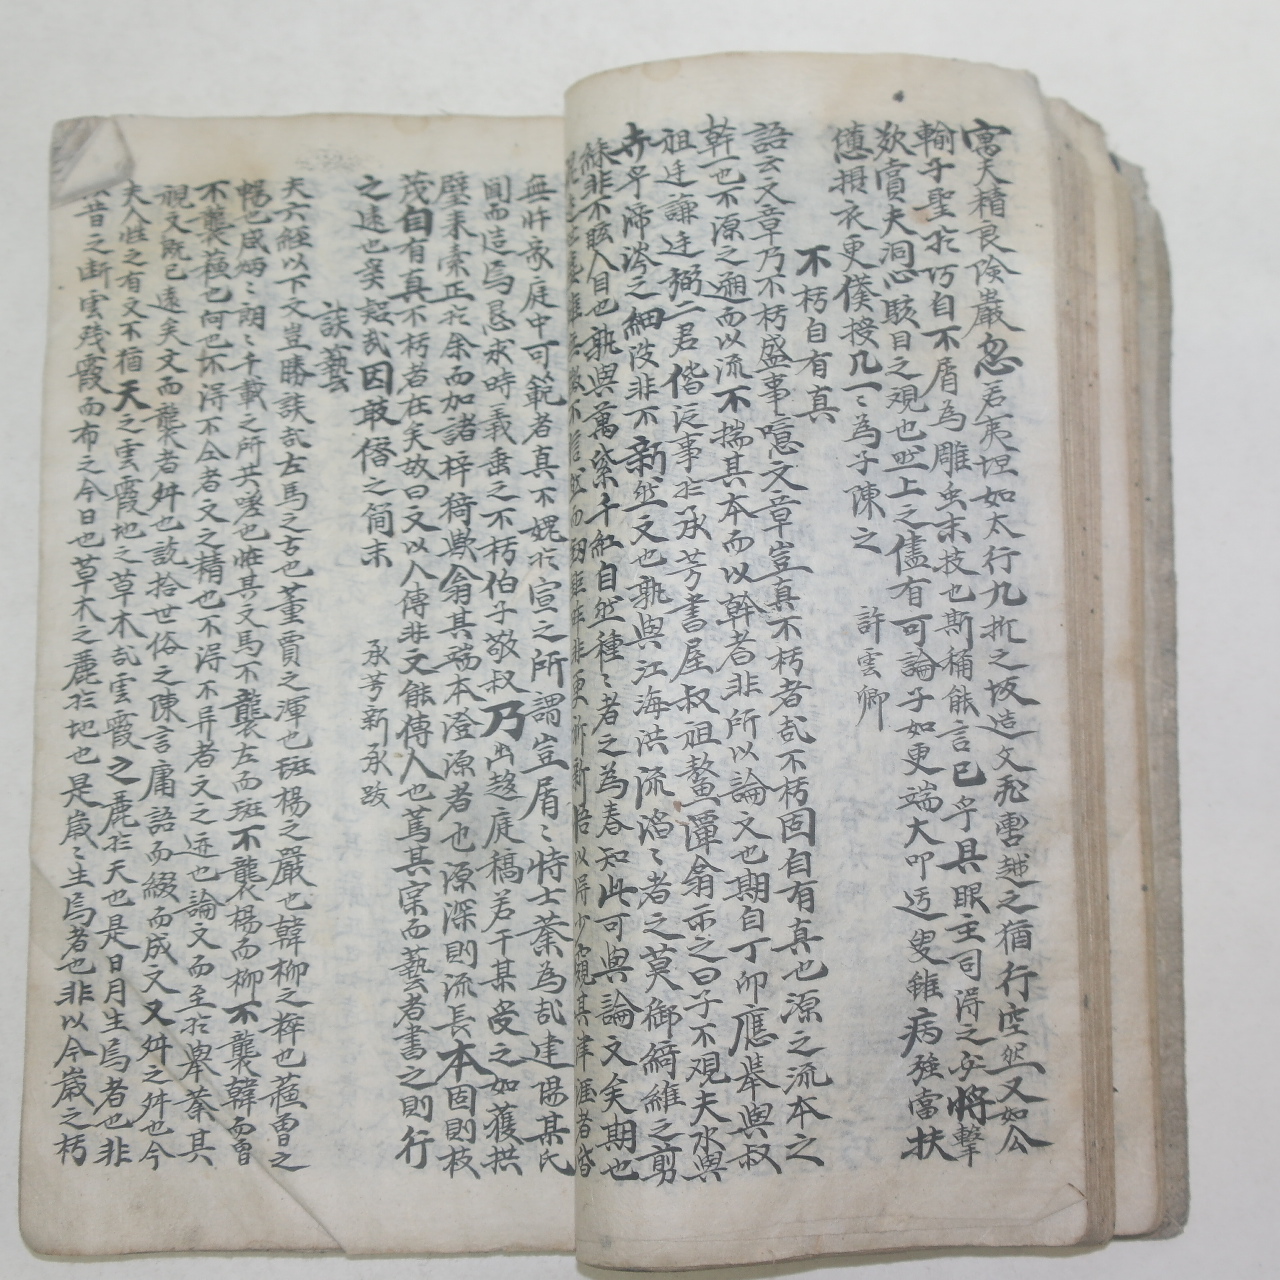 寓天精艮險嚴忽若夷坦如太行九折之坂造文飛雲越之猶行空然又如公
輸子聖於巧自不屑為雕虫末技也斯稱能言已乎具眼主司得之必將擊
歎賞夫洞心駭目之觀也然上之儘有可論子如更端大叩迃叟雖病強當扶
憊攝衣更僕按几一〻為子陳之 許雲卿
不朽自有真
語云文章乃不朽盛事噫文章豈真不朽者哉不朽固自有真也源之流本之
幹一也不源之遡而以流不揣其本而以幹者非所以論文也期自丁卯應擧與叔
祖廷謙廷弼二君偕従事於承芳書屋叔祖鰲潭翁示之曰子不觀夫水與
卉乎渧涔之細沒非不新然文也孰與江海洪流滔〻者之莫御綺維之剪
綵非不眩人目也孰與萬紫千紅自然種〻者之為春知此可與論文矣期也
無許家庭中可範者真不媿於宣之所謂豈屑〻恃士蓁為哉建陽某氏
圓而造焉恳求時義垂之不朽伯子敬叔乃出趍庭稿若干某受之如獲拱
壁来素正於余而加諸梓猗歟翁其端本澄源者也源深則流長本固則枝
茂自有真不朽者在矣故曰文以人傳非文能傳人也蔦其宗而藝者書之則行
之遠也矣疑哉因敢僭之簡末 承芳新承跋
談藝
夫六經以下文豈勝談哉左馬之古也董賈之渾也班楊之嚴也韓柳之粹也蘓曾之
暢也咸炳〻朗〻千載之所共嘆也惟其文馬不襲左而班不襲楊而柳不襲韓而曾
不襲蘓也何也怀得不今者文之精也不得不异者文之迹也論文而至於舉蓁其
視文既已遠矣文而襲者舛也訤拾世俗之陳言庸語而綴而成文又舛之舛也今
夫人性之有文不猶天之雲霞地之草木哉雲霞之麗於天也是日月生焉者也非
昔之断雲殘霞而布之今日也草木之麗於地也是歲〻生焉者也非以今歲之朽